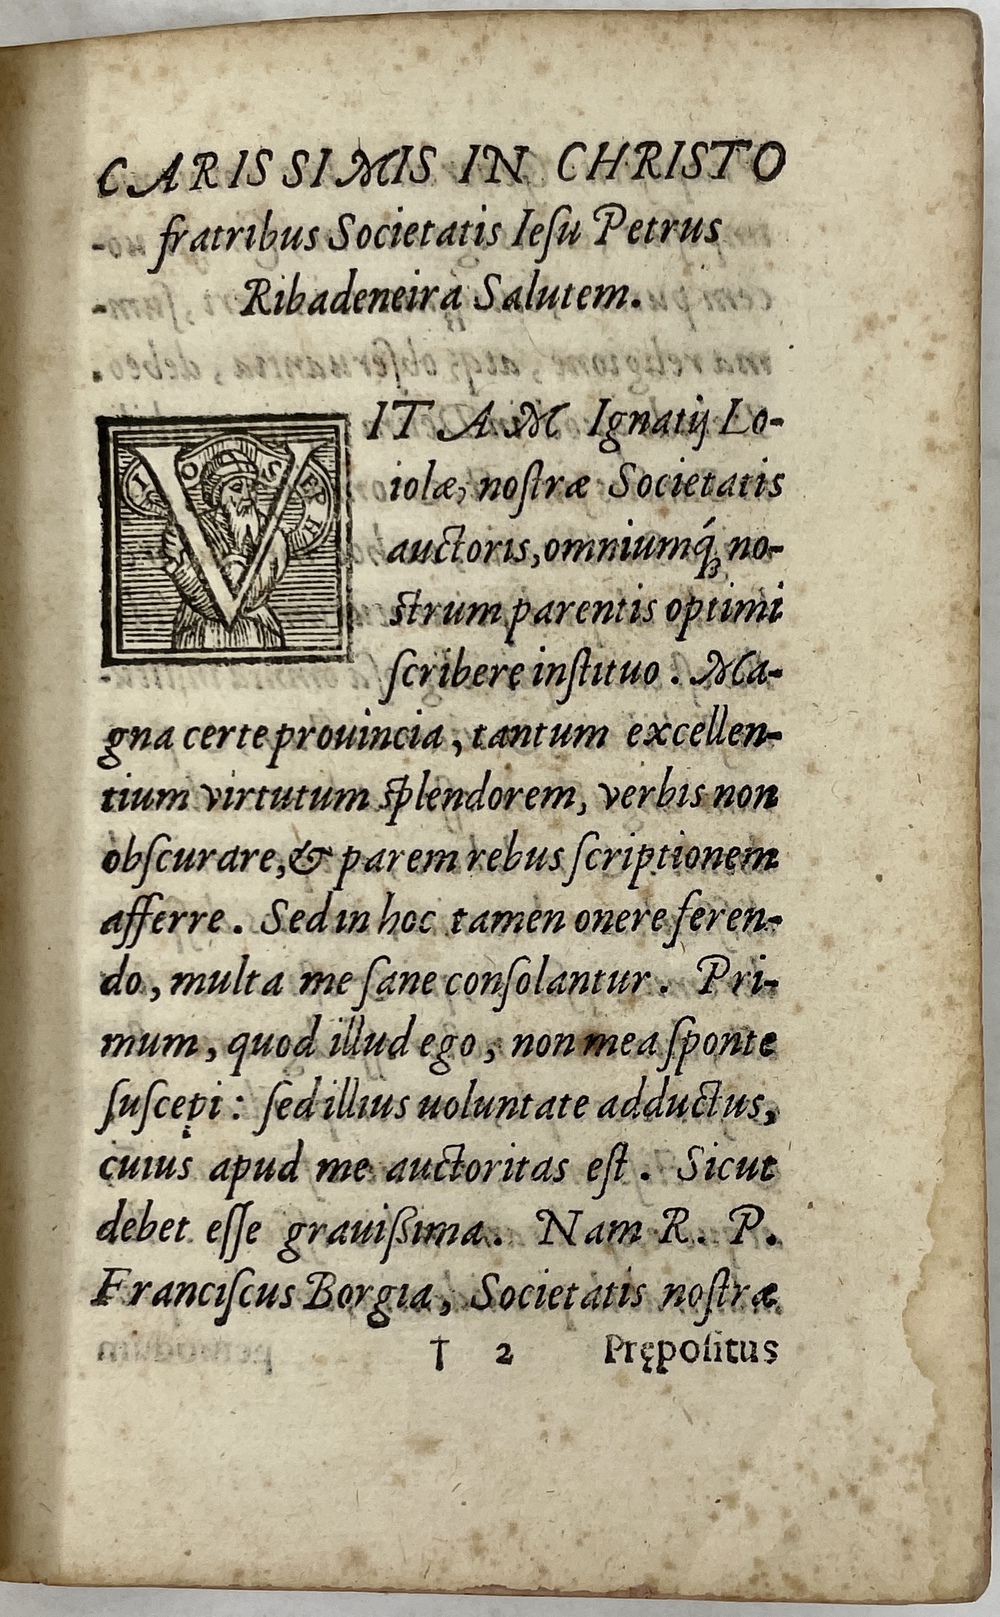 CARISSIMIS IN CHRISTO
fratribus Societatis Ieſu Petrus
Ribadeneira Salutem.
VITAM Ignatij Lo-
iolæ, noſtræ Societatis
auctoris, omniumq́ꝫ no-
strum parentis optimi
ſcribere inſtituo. Ma-
gna certe prouincia, tantum excellen-
tium virtutum ſplendorem, verbis non
obſcurare, & parem rebus ſcriptionem
afferre. Sed in hoc tamen onere feren-
do, multa me ſane conſolantur. Pri-
mum, quod illud ego, non mea ſponte
ſuſcepi: ſed illius uoluntate adductus,
cuius apud me auctoritas eſt. Sicut
debet eſſe grauiſsima. Nam R. P.
Franciſcus Borgia, Societatis noſtræ
† 2 Prępoſitus